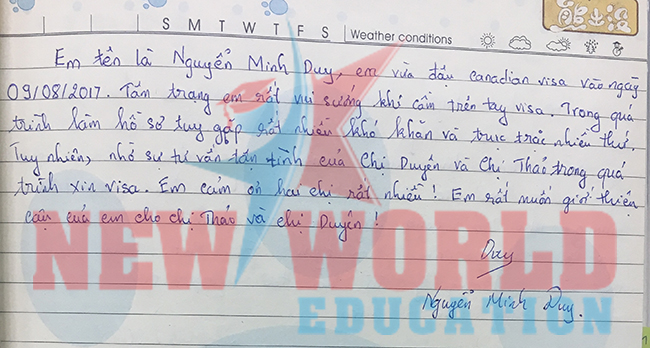 S M T W T F S Weather conditions
Em tên là Nguyễn Minh Duy, em vừa đậu Canadian visa vào ngày
09/08/2017. Tâm trạng em rất vui sướng khi cầm trên tay visa. Trong quá
trình làm hồ sơ tuy gặp rất nhiều khó khăn và trục trặc nhiều thứ.
Tuy nhiên, nhờ sự tư vấn tận tình của Chị Duyên và Chị Thảo trong quá
trình xin visa. Em cảm ơn hai chị rất nhiều! Em rất muốn giới thiệu
cậu của em cho chị Thảo và chị Duyên!
NEW WORLD
EDUCATION
Duy
Nguyễn Minh Duy.